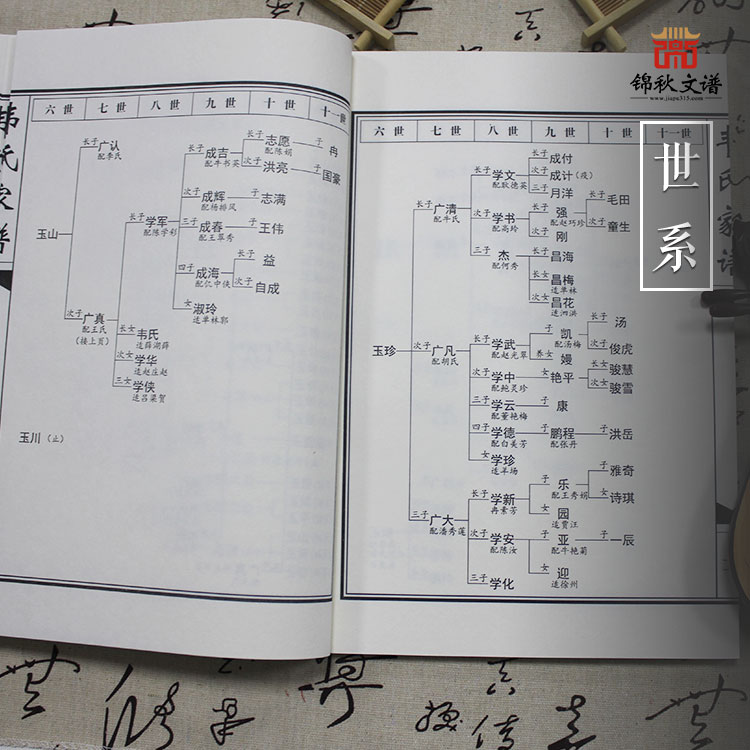 锦秋文谱
www.jiapu315.com
世系
六世 七世 八世 九世 十世 十一世
玉山
长子 广认
配李氏
次子 广真
配王氏
(接上页)
长子 学军
配陈学彩
长子 成吉
配牛书英
长子 志愿
配陈娟
子 冉
次子 洪亮
子 国豪
次子 成辉
配杨排风
子 志满
三子 成春
配王翠秀
子 王伟
四子 成海
配仁中侠
长子 益
次子 自成
女 淑玲
适单林郭
长女 韦氏
适薛湖薛
次女 学华
适赵庄赵
三女 学侠
适吕梁贺
玉川 (止)
六世 七世 八世 九世 十世 十一世
玉珍
长子 广清
配牛氏
长子 学文
配耿德英
长子 成付
次子 成计 (殁)
三子 月洋
次子 学书
配高玲
长子 强
配赵巧珍
长子 毛田
次子 童生
次子 刚
三子 杰
配何秀
长子 昌海
长女 昌梅
适单林
次女 昌花
适泗洪
次子 广凡
配胡氏
长子 学武
配赵光翠
子 凯
配汤梅
长子 汤
次子 俊虎
养女 嫚
次子 学中
配鲍灵珍
女 艳平
长女 骏慧
次女 骏雪
三子 学云
配董艳梅
子 康
四子 学德
配白美芳
子 鹏程
配张丹
子 洪岳
女 学珍
适羊场
三子 广大
配潘秀莲
长子 学新
冉素芳
子 乐
配王秀娟
子 雅奇
女 诗琪
女 园
适贾汪
次子 学安
配陈汝
子 亚
配牛艳菊
子 一辰
女 迎
适徐州
三子 学化